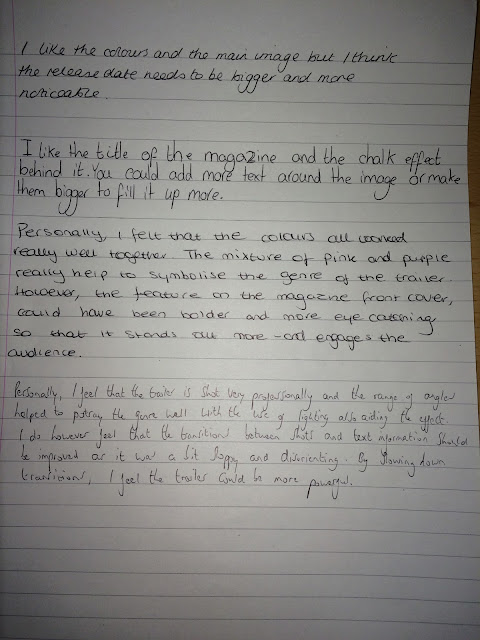 I like the colours and the main image but I think
the release date needs to be bigger and more
noticeable.
I like the title of the magazine and the chalk effect
behind it. You could add more text around the image or make
them bigger to fill it up more.
Personally, I felt that the colours all worked
really well together. The mixture of pink and purple
really help to symbolise the genre of the trailer.
However, the feature on the magazine front cover,
could have been bolder and more eye catching
so that it stands out more and engages the
audience.
Personally, I feel that the trailer is shot very professionally and the range of angles
helped to portray the genre well with the use of lighting also aiding the effect.
I do however feel that the transitions between shots and text information should
be improved as it was a bit sloppy and disorienting. By slowing down
transitions, I feel the trailer could be more powerful.